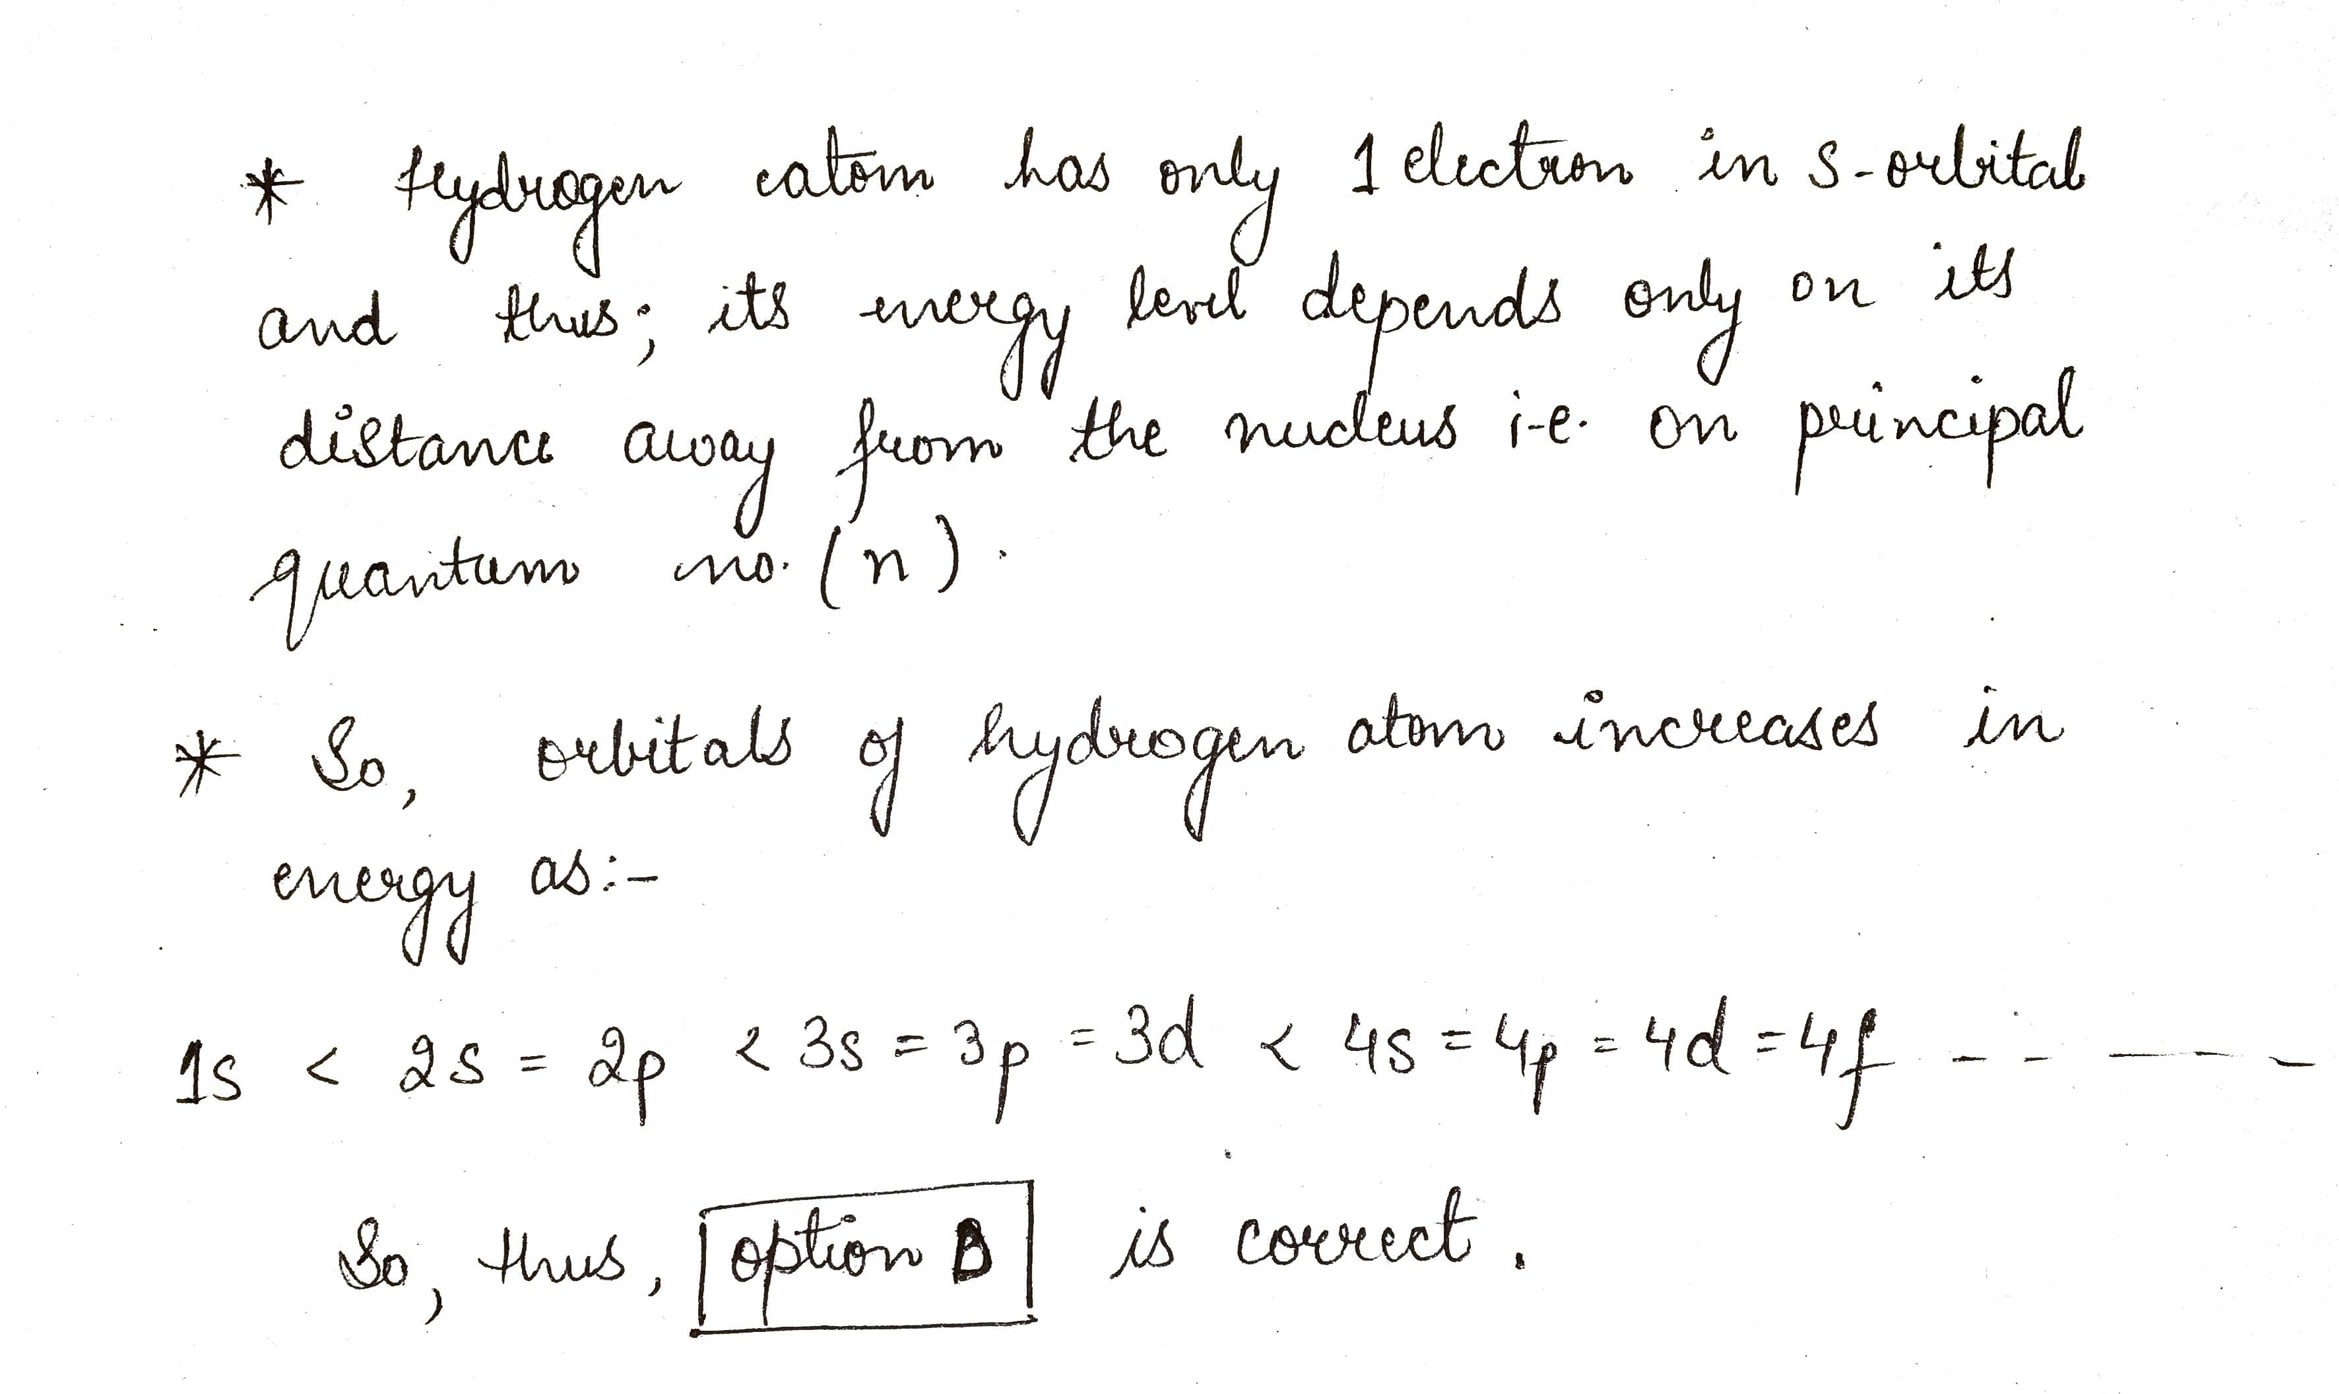 * Hydrogen atom has only 1 electron in s-orbital
and thus; its energy level depends only on its
distance away from the nucleus i.e. on principal
quantum no. (n).
* So, orbitals of hydrogen atom increases in
energy as:-
1s < 2s = 2p < 3s = 3p = 3d < 4s = 4p = 4d = 4f - - - - -
So, thus, option B is correct.